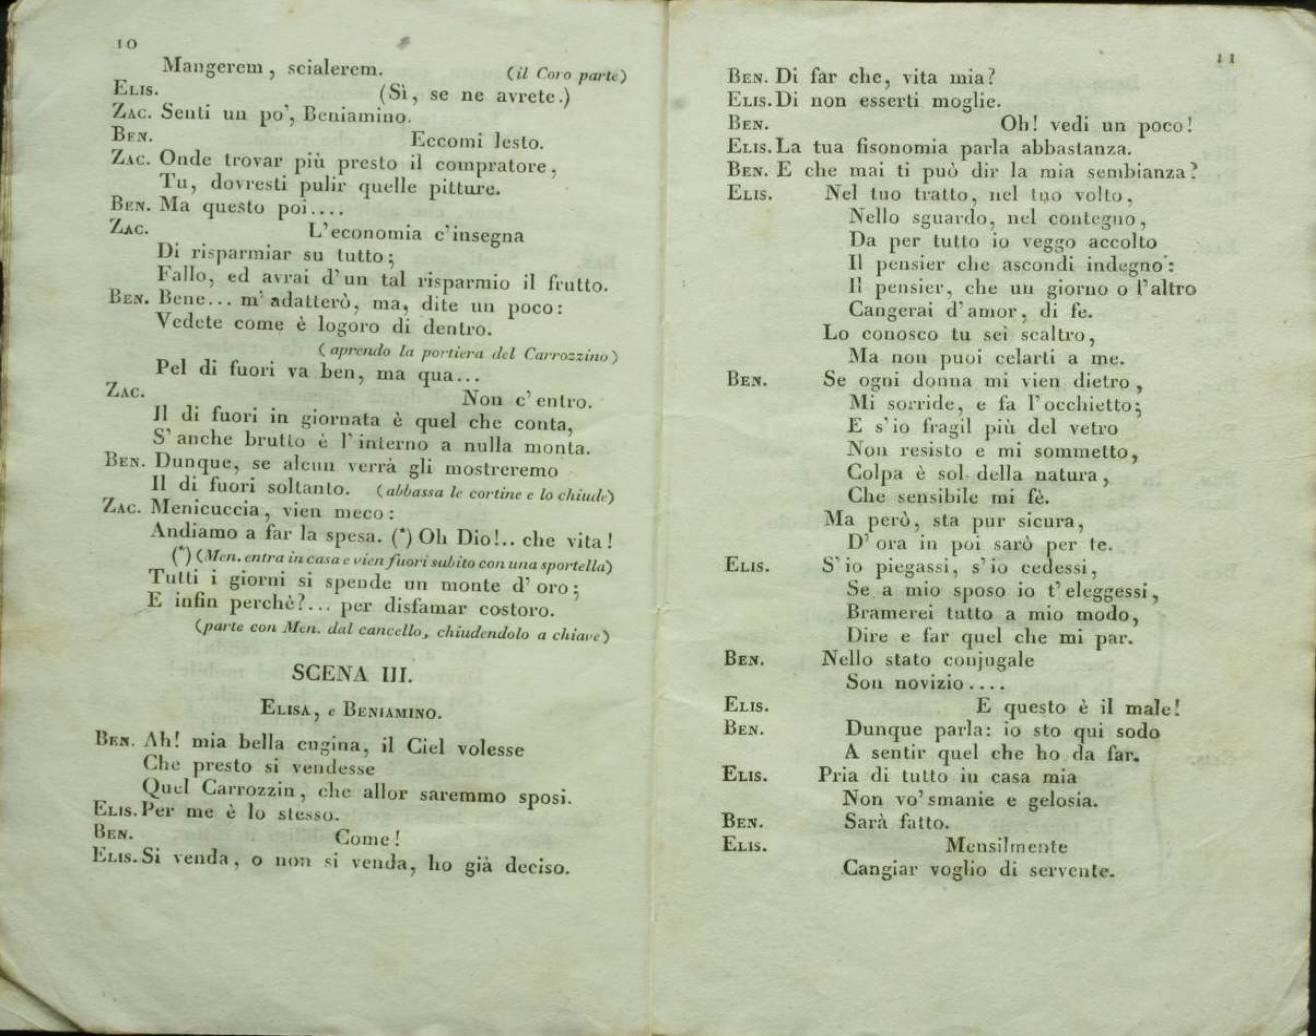 10
Mangerem, scialerem. (il Coro parte)
Elis. (Sì, se ne avrete.)
Zac. Senti un po', Beniamino.
Ben. Eccomi lesto.
Zac. Onde trovar più presto il compratore,
Tu, dovresti pulir quelle pitture.
Ben. Ma questo poi....
Zac. L'economia c'insegna
Di risparmiar su tutto;
Fallo, ed avrai d'un tal risparmio il frutto.
Ben. Bene... m'adatterò, ma, dite un poco:
Vedete come è logoro di dentro.
(aprendo la portiera del Carrozzino)
Pel di fuori va ben, ma qua...
Zac. Non c'entro.
Il di fuori in giornata è quel che conta,
S'anche brutto è l'interno a nulla monta.
Ben. Dunque, se alcun verrà gli mostreremo
Il di fuori soltanto. (abbassa le cortine e lo chiude)
Zac. Menicuccia, vien meco:
Andiamo a far la spesa. (*) Oh Dio!.. che vita!
(*) (Men. entra in casa e vien fuori subito con una sportella)
Tutti i giorni si spende un monte d'oro;
E infin perchè?... per disfamar costoro.
(parte con Men. dal cancello, chiudendolo a chiave)
SCENA III.
Elisa, e Beniamino.
Ben. Ah! mia bella cugina, il Ciel volesse
Che presto si vendesse
Quel Carrozzin, che allor saremmo sposi.
Elis. Per me è lo stesso.
Ben. Come!
Elis. Si venda, o non si venda, ho già deciso.
11
Ben. Di far che, vita mia?
Elis. Di non esserti moglie.
Ben. Oh! vedi un poco!
Elis. La tua fisonomia parla abbastanza.
Ben. E che mai ti può dir la mia sembianza?
Elis. Nel tuo tratto, nel tuo volto,
Nello sguardo, nel contegno,
Da per tutto io veggo accolto
Il pensier che ascondi indegno:
Il pensier, che un giorno o l'altro
Cangerai d'amor, di fe.
Lo conosco tu sei scaltro,
Ma non puoi celarti a me.
Ben. Se ogni donna mi vien dietro,
Mi sorride, e fa l'occhietto;
E s'io fragil più del vetro
Non resisto e mi sommetto,
Colpa è sol della natura,
Che sensibile mi fè.
Ma però, sta pur sicura,
D'ora in poi sarò per te.
Elis. S'io piegassi, s'io cedessi,
Se a mio sposo io t'eleggessi,
Bramerei tutto a mio modo,
Dire e far quel che mi par.
Ben. Nello stato conjugale
Son novizio....
Elis. E questo è il male!
Ben. Dunque parla: io sto qui sodo
A sentir quel che ho da far.
Elis. Pria di tutto in casa mia
Non vo' smanie e gelosia.
Ben. Sarà fatto.
Elis. Mensilmente
Cangiar voglio di servente.